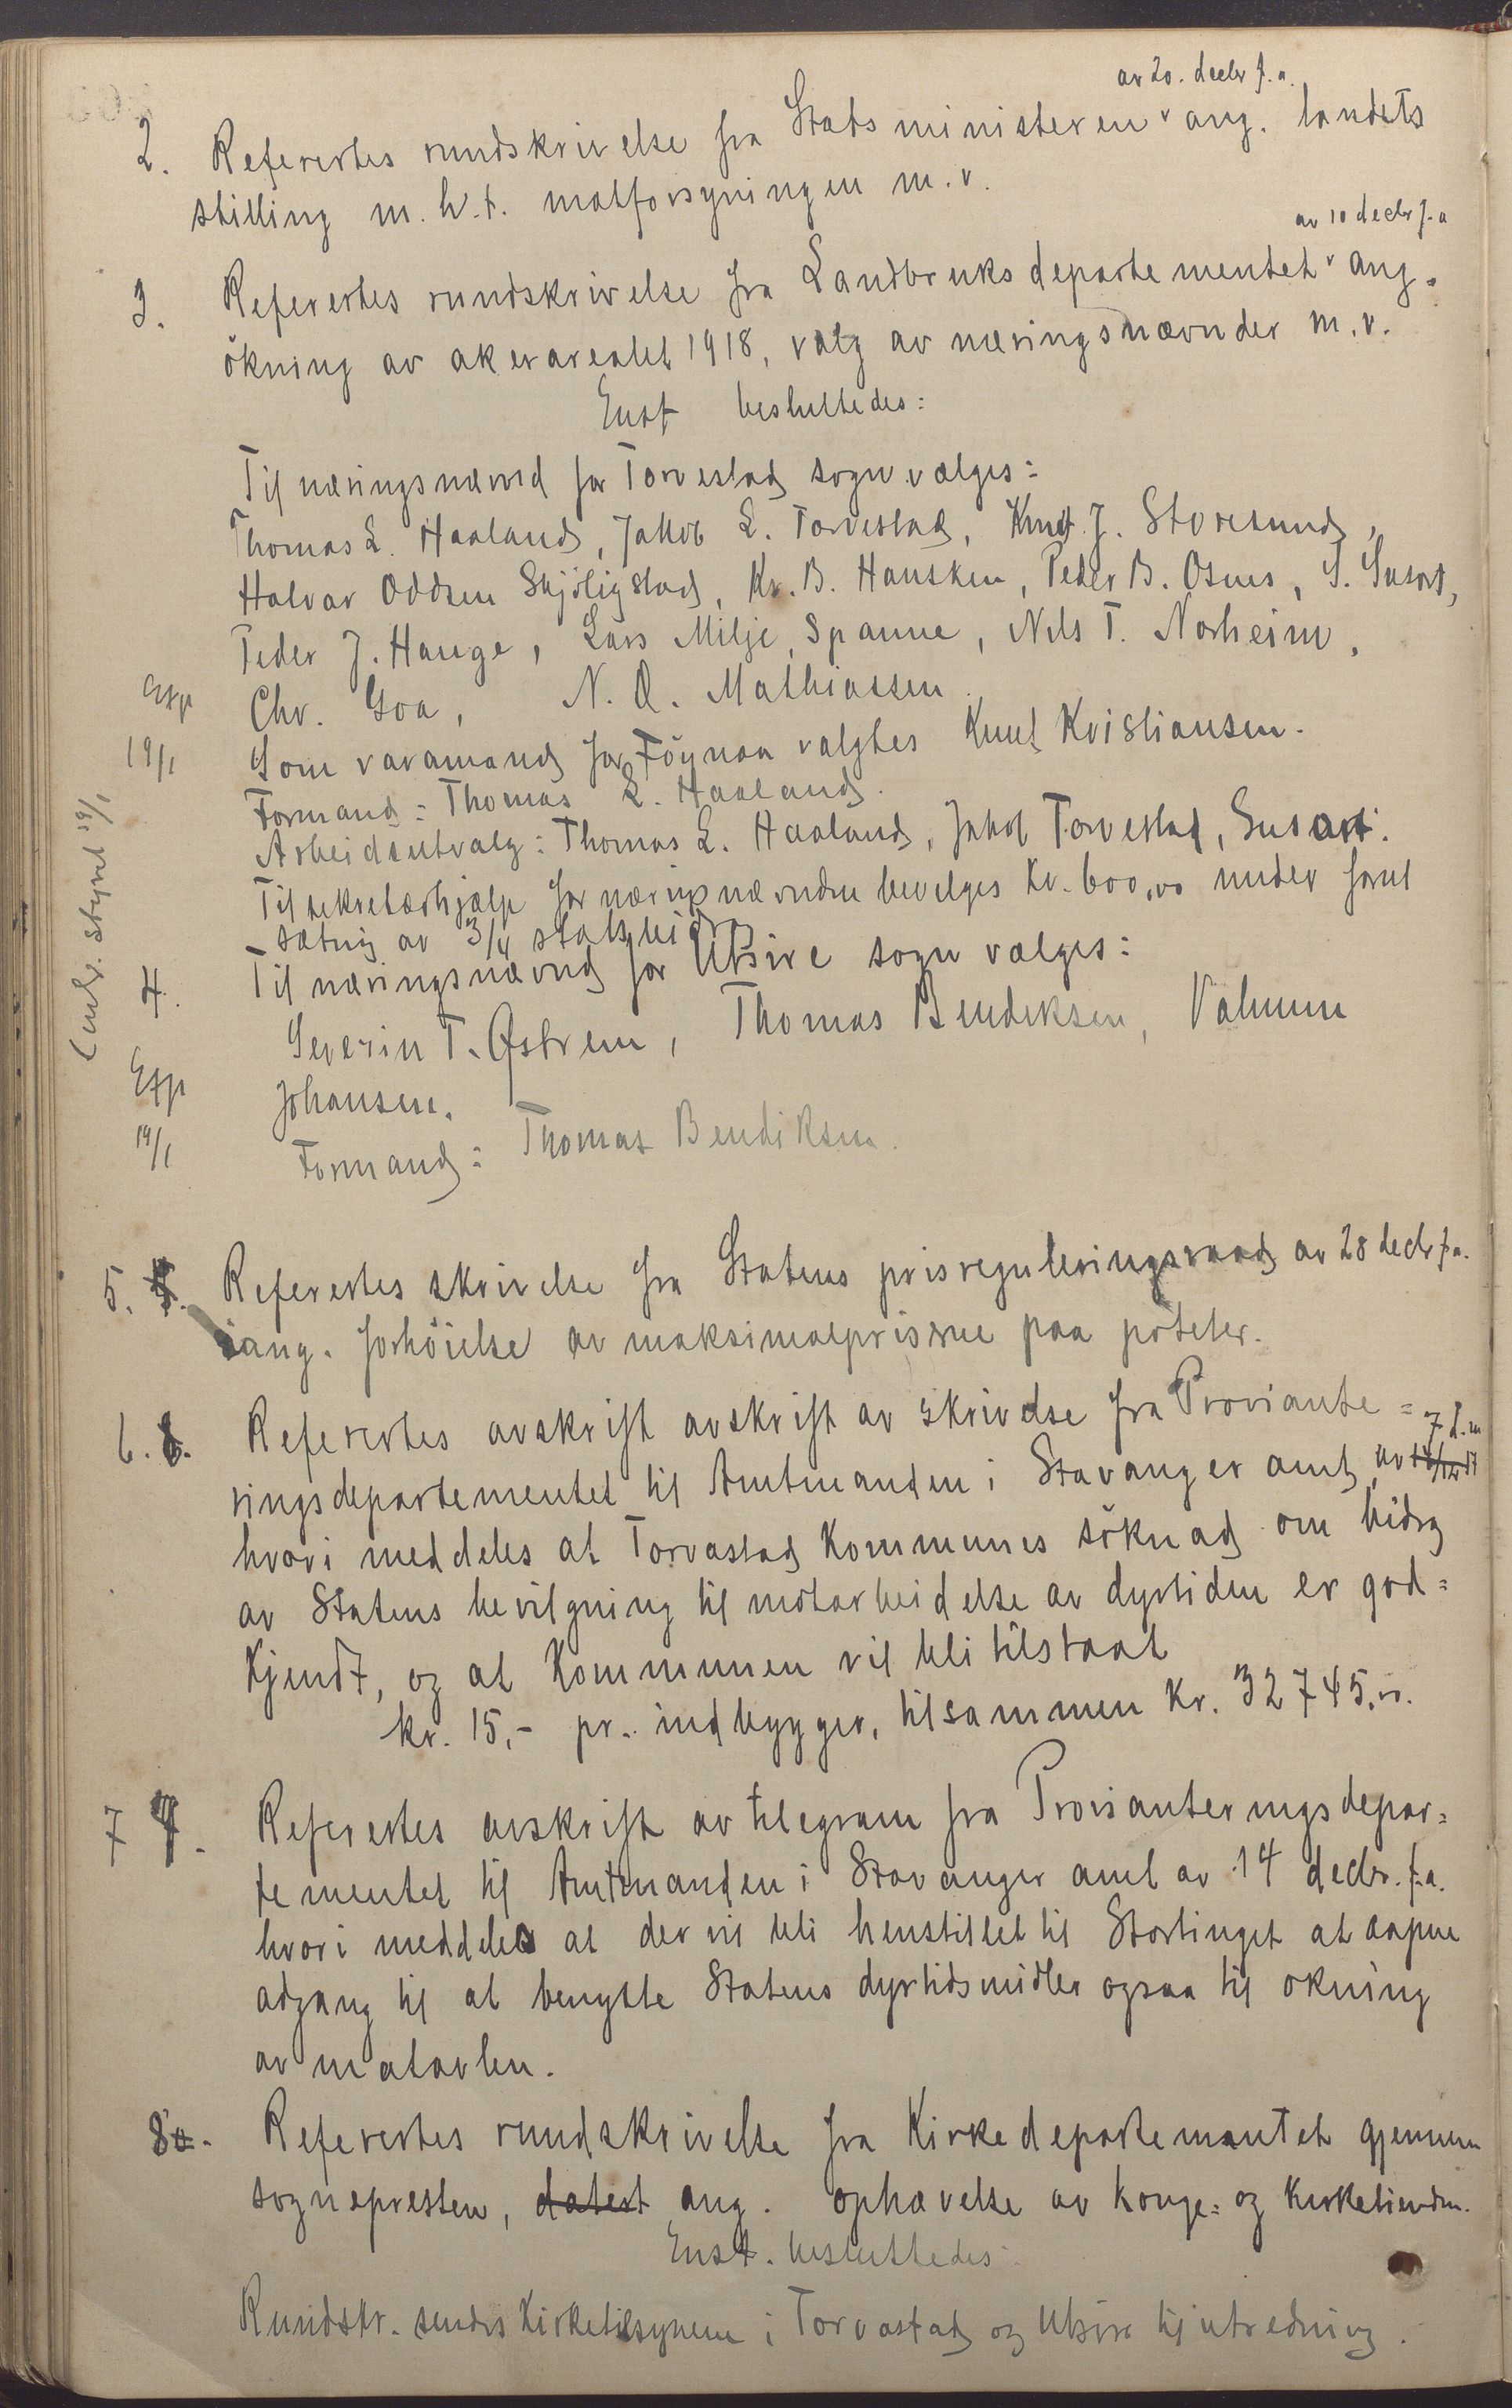 av 20. decbr f.a.
2. Referertes rundskrivelse fra Statsministeren ang. landets
stilling m.h.t. matforsyningen m.v.
av 10 decbr f.a
3. Referertes rundskrivelse fra Landbruksdepartementet ang.
ökning av akerarealet 1918, valg av næringsnævnder m.v.
Enst besluttedes:
Til næringsnævnd for Torvestad sogn vælges:
Thomas L. Haaland, Jakob L. Torvestad, Knut J. Storesund,
Halvar Oddsen Skjöligstad, Kr. B. Hausken, Peder B. Osnes, S. Susort,
Peder J. Hauge, Lars Milje, Spanne, Nils T. Norheim,
Exp Chr. Goa, N. O. Mathiassen.
19/1 Som varamand for Föynaa valgtes Knut Kristiansen.
Formand: Thomas L. Haaland.
Arbeidsutvalg: Thomas L. Haaland, Jakob Torvestad, Susort.
Til sekretærhjælp for næringsnævnden bevilges Kr. 600,00 under forut
-sætnig av 3/4 statsbidrag
Landbr. styret 19/1
4. Til næringsnævnd for Utsire sogn vælges:
Severin T. Østrem, Thomas Bendiksen, Valnum
Exp Johansen.
19/1 Formand: Thomas Bendiksen.
5. 5. Referertes skrivelse fra Statens prisreguleringsraad av 28 decbr f.a.
ang. forhöielse av maksimalprisene paa poteter.
6. 6. Referertes avskrift avskrift av skrivelse fra Proviante=
7 d.m
ringsdepartementet til Amtmanden i Stavanger amt, av
hvori meddeles at Torvastad Kommunes söknad om bidrg
av Statens bevilgning til motarbeidelse av dyrtiden er god=
Kjendt, og at Kommunen vil bli tilstaat
kr. 15,- pr. indbygger, tilsammen Kr. 32745,00.
7 7. Referertes avskrift av telegram fra Provianteringsdepar=
tementet til Amtmanden i Stavanger amt av 14 decbr. f.a.
hvori meddeles at der vil bli henstillet til Stortinget at aapne
adgang til at benytte Statens dyrtidsmidler ogsaa til ökning
av matavlen.
8. Referertes rundskrivelse fra Kirkedepartementet gjennem
sognepresten, datert ang. ophævelse av konge= og Kirketienden.
Enst. besluttedes:
Rundskr. sendes Kirketilsynene i Torvastad og Utsire til utredning.